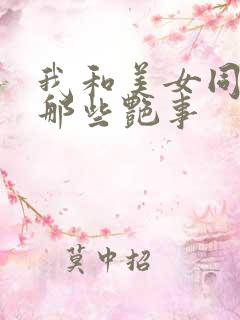 我和美女同
那些艷事
莫中招